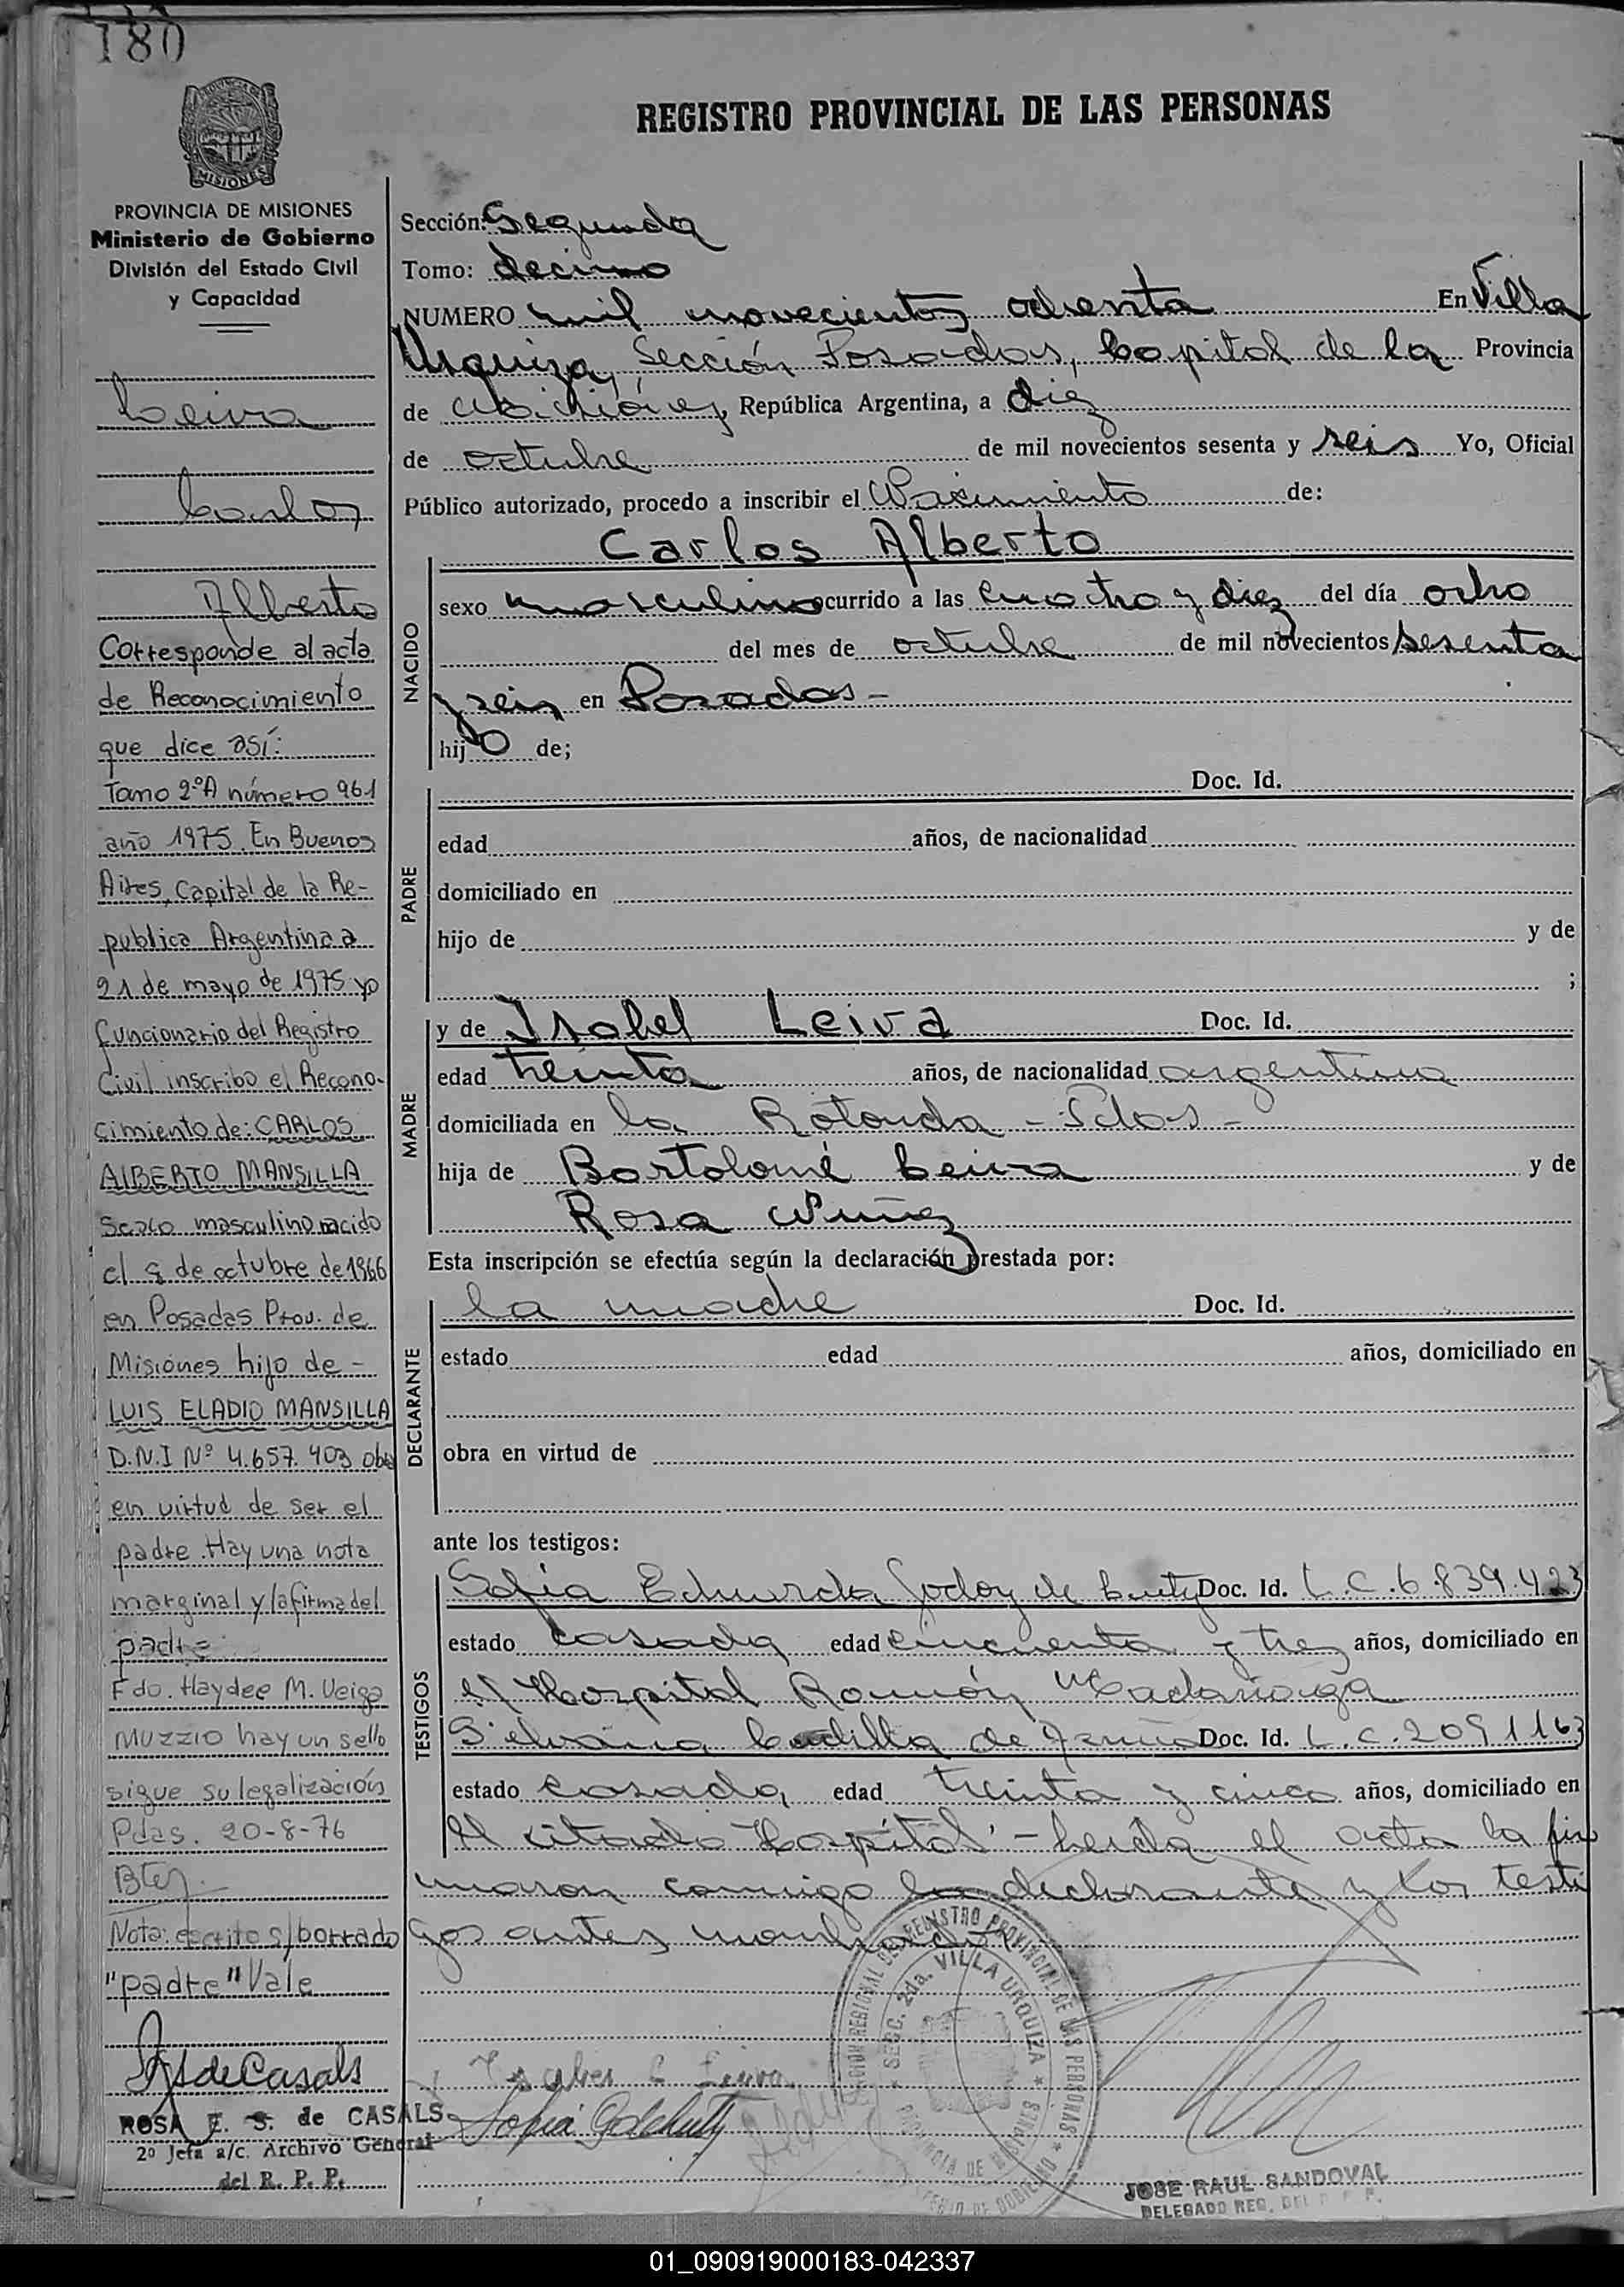 180
MISIONES
PROVINCIA DE MISIONES
Ministerio de Gobierno
División del Estado Civil
y Capacidad
Leiva
Carlos
Alberto
Corresponde al acta
de Reconocimiento
que dice así:
Tomo 2ºA número 961
año 1975. En Buenos
Aires, Capital de la Re-
publica Argentina a
21 de mayo de 1975 yo
funcionario del Registro
Civil inscribo el Recono-
cimiento de: CARLOS
ALBERTO MANSILLA
Sexo masculino nacido
el 8 de octubre de 1966
en Posadas Prov. de
Misiones hijo de -
LUIS ELADIO MANSILLA
D.N.I Nº 4.657.403 obra
en virtud de ser el
padre. Hay una nota
marginal y la firma del
padre
Fdo. Haydee M. Veiga
Muzzio hay un sello
sigue su legalización
Pdas. 20-8-76
Nota: escrito s/borrado
"padre" Vale
ROSA E. S. de CASALS
2º Jefa a/c. Archivo General
del R. P. P.
REGISTRO PROVINCIAL DE LAS PERSONAS
Sección: Segunda
Tomo: decimo
NUMERO mil novecientos ochenta En Villa
Urquiza, Sección Posadas, Capital de la Provincia
de Misiones, República Argentina, a diez
de octubre de mil novecientos sesenta y seis Yo, Oficial
Público autorizado, procedo a inscribir el Nacimiento de:
NACIDO
Carlos Alberto
sexo masculino ocurrido a las cuatro y diez del día ocho
del mes de octubre de mil novecientos sesenta
y seis en Posadas -
hijo de;
PADRE
Doc. Id.
edad años, de nacionalidad
domiciliado en
hijo de y de
;
MADRE
y de Isabel Leiva Doc. Id.
edad treinta años, de nacionalidad argentina
domiciliada en la Rotonda - Pdas -
hija de Bartolomé Leiva y de
Rosa Nuñez
Esta inscripción se efectúa según la declaración prestada por:
DECLARANTE
la madre Doc. Id.
estado edad años, domiciliado en
obra en virtud de
ante los testigos:
TESTIGOS
Sofía Eduarda Godoy de Doc. Id. L.C. 6.839.423
estado casada edad cincuenta y tres años, domiciliado en
el Hospital Ramón Madariaga
Silvana de Doc. Id. L.C. 2091163
estado casada edad treinta y cinco años, domiciliado en
el citado Hospital - Leida el acta la fir
maron conmigo la declarante y los testi
gos antes nombrados
DELEGACION REGIONAL DEL REGISTRO PROVINCIAL DE LAS PERSONAS
SECC. 2da. VILLA URQUIZA
PROVINCIA DE MISIONES
MINISTERIO DE GOBIERNO
JOSE RAUL SANDOVAL
DELEGADO REG. DEL R. P. P.
01_090919000183-042337